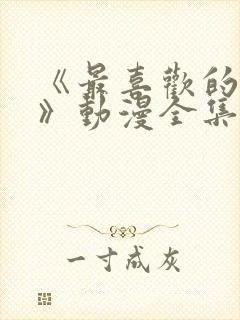 《最喜歡的
》動漫全集
一寸成灰